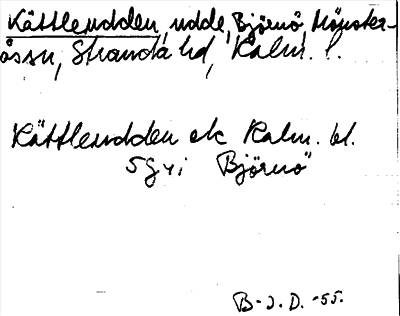 Kättleudden, udde, Björnö, Mönster-
åssn, Stranda hd, Kalm. l.
Kättleudden ek Kalm. bl.
5G4i Björnö
B-J.D. -55.